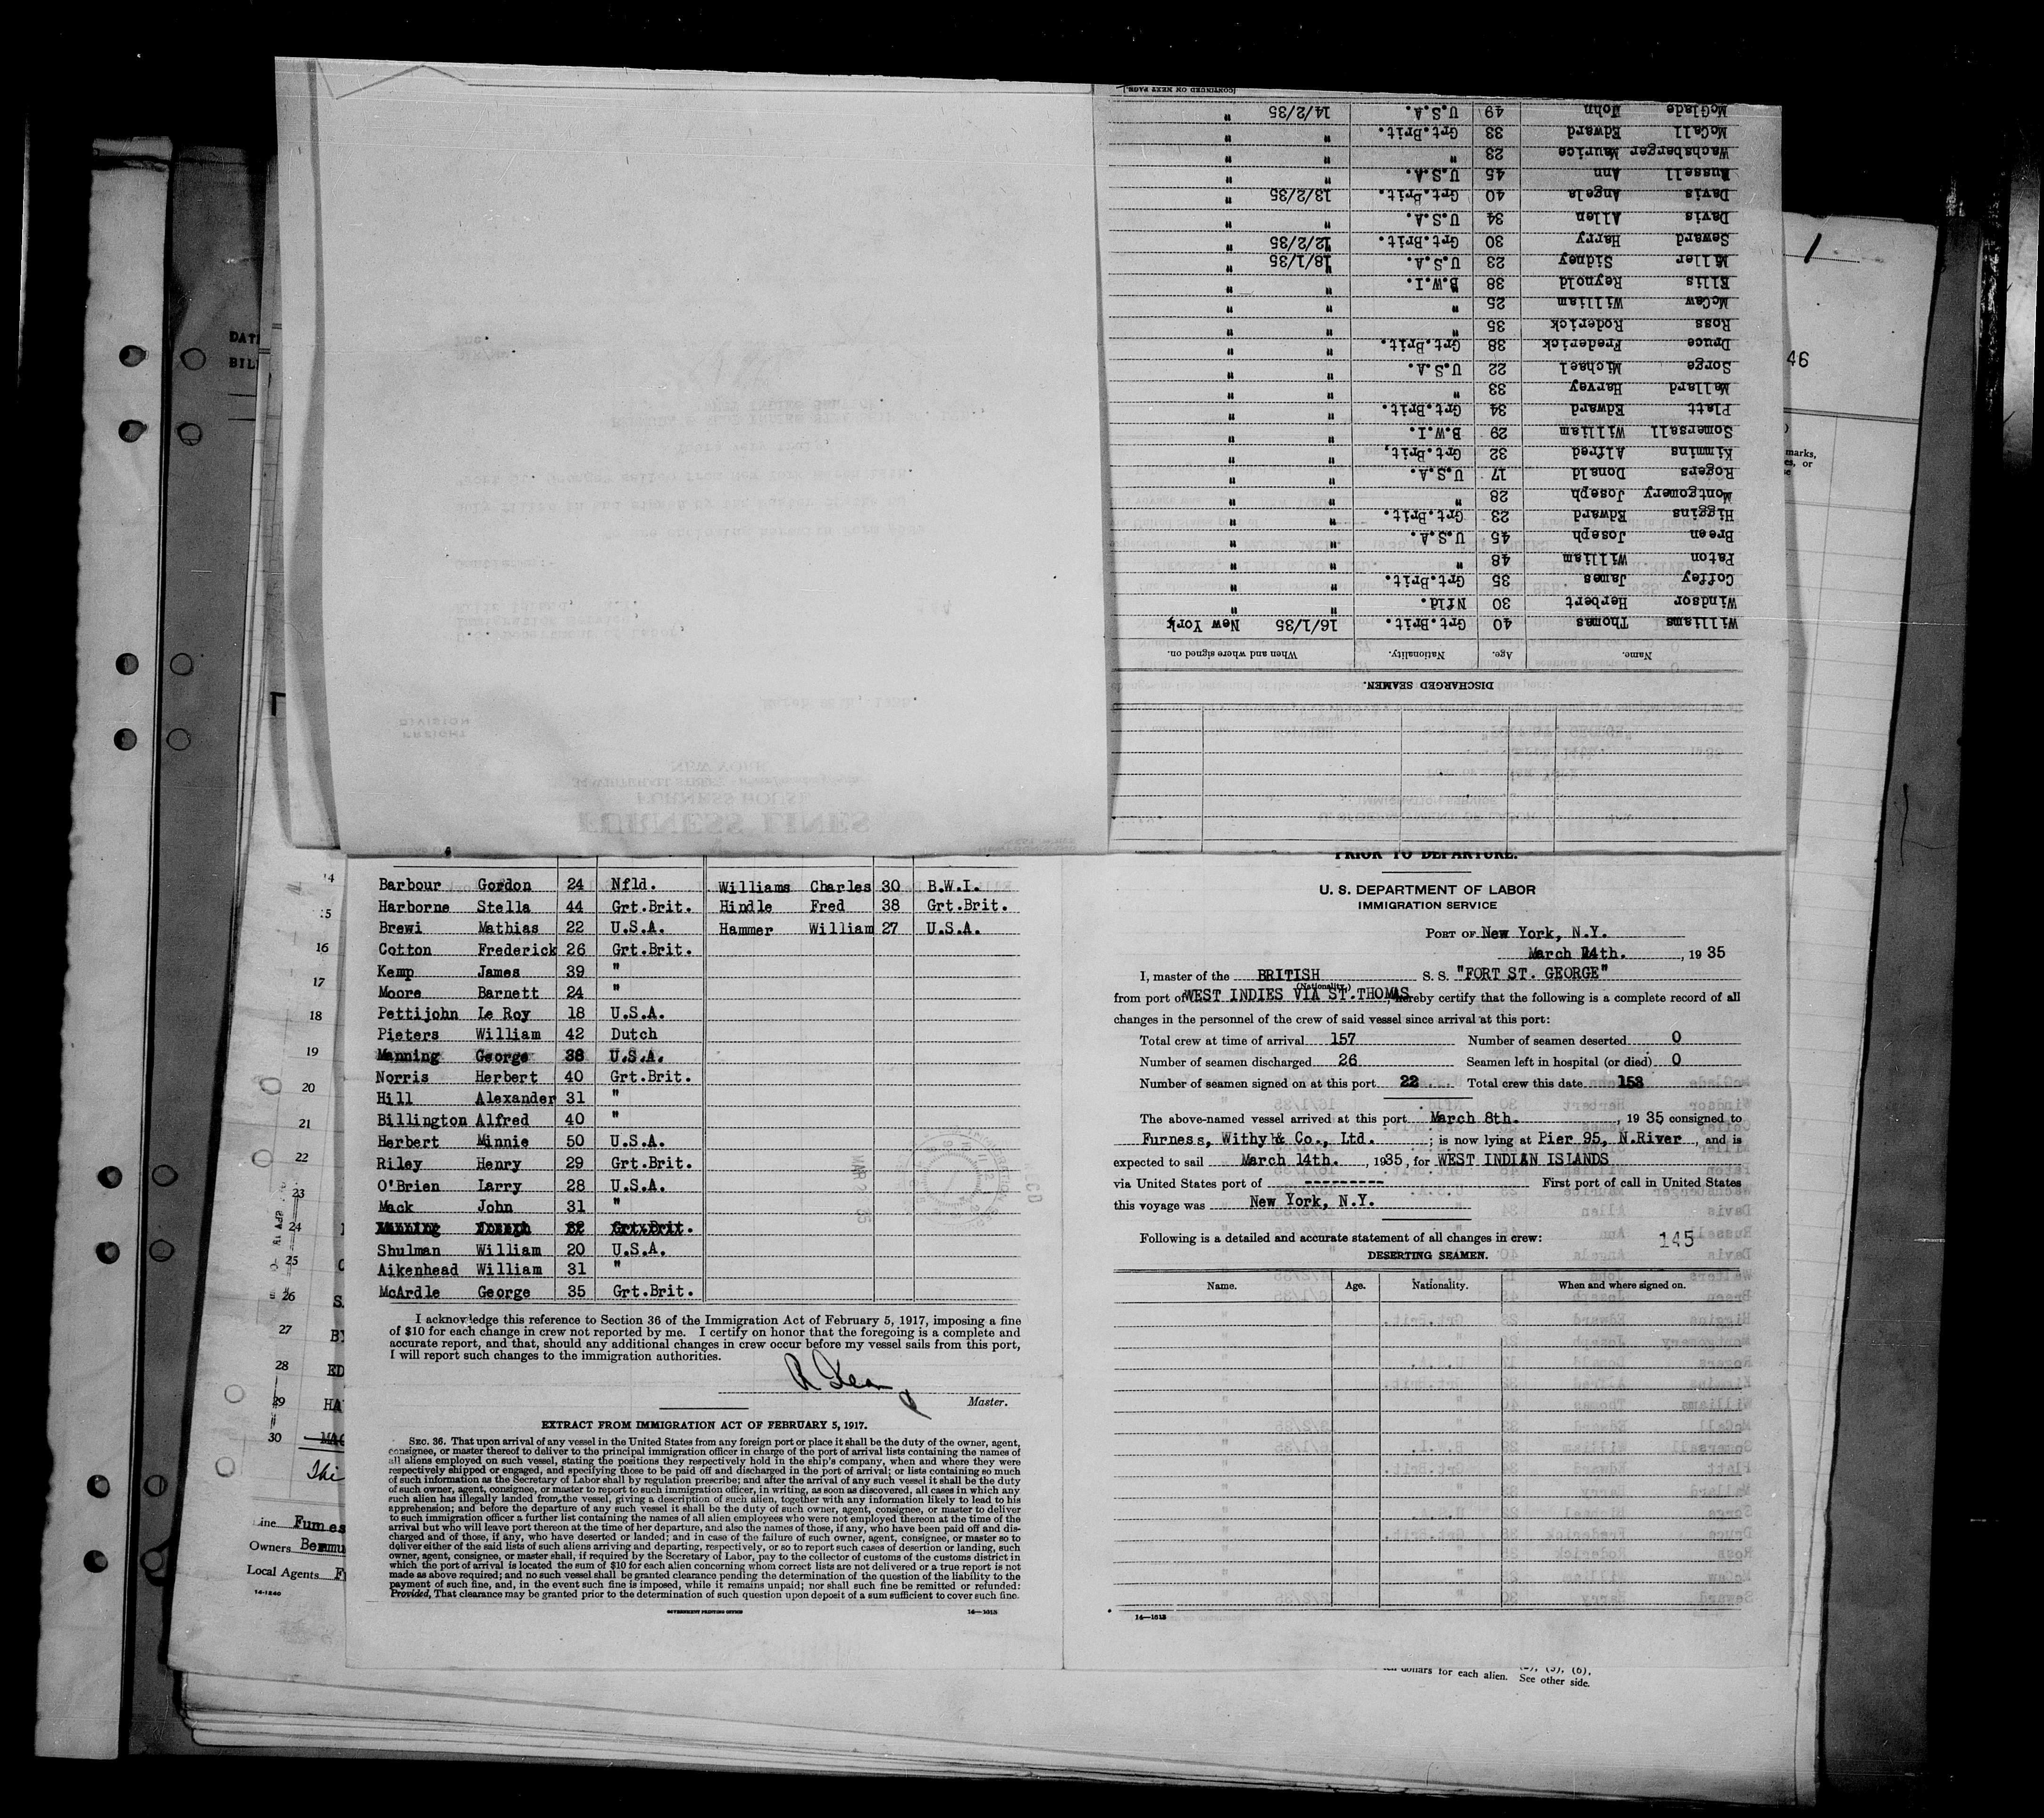 DISCHARGED SEAMEN.
Name. Age. Nationality. When and where signed on.
Williams Thomas 40 Grt.Brit. 16/1/35 New York
Windsor Herbert 30 Nfld. " "
Coffey James 35 Grt.Brit. " "
Paton William 48 " " "
Breen Joseph 45 U.S.A. " "
Higgins Edward 23 Grt.Brit. " "
Montgomery Joseph 28 " " "
Rogers Donald 17 U.S.A. " "
Kimmins Alfred 32 Grt.Brit. " "
Somersell William 29 B.W.I. " "
Platt Edward 34 Grt.Brit. " "
Mallard Harvey 33 " " "
Sorge Michael 22 U.S.A. " "
Druce Frederick 38 Grt.Brit. " "
Ross Roderick 35 " " "
McCaw William 25 " " "
Ellis Reynold 38 B.W.I. " "
Miller Sidney 23 U.S.A. 18/1/35 "
Seward Harry 30 Grt.Brit. 12/2/35 "
Davis Allen 34 U.S.A. " "
Davis Angela 40 Grt.Brit. 13/2/35 "
Russell Ann 45 U.S.A. " "
Wachsberger Maurice 23 " " "
McCall Edward 33 Grt.Brit. " "
McGlade John 49 U.S.A. 14/2/35 "
(CONTINUED ON NEXT PAGE.)
1
46
marks,
es, or
Barbour Gordon 24 Nfld. Williams Charles 30 B.W.I.
Harborne Stella 44 Grt.Brit. Hindle Fred 38 Grt.Brit.
Brewi Mathias 22 U.S.A. Hammer William 27 U.S.A.
Cotton Frederick 26 Grt.Brit.
Kemp James 39 "
Moore Barnett 24 "
Pettijohn Le Roy 18 U.S.A.
Pieters William 42 Dutch
Manning George 38 U.S.A.
Norris Herbert 40 Grt.Brit.
Hill Alexander 31 "
Billington Alfred 40 "
Herbert Minnie 50 U.S.A.
Riley Henry 29 Grt.Brit.
O'Brien Larry 28 U.S.A.
Mack John 31 "
Manning Joseph 32 Grt.Brit.
Shulman William 20 U.S.A.
Aikenhead William 31 "
McArdle George 35 Grt.Brit.
I acknowledge this reference to Section 36 of the Immigration Act of February 5, 1917, imposing a fine
of $10 for each change in crew not reported by me. I certify on honor that the foregoing is a complete and
accurate report, and that, should any additional changes in crew occur before my vessel sails from this port,
I will report such changes to the immigration authorities.
Master.
EXTRACT FROM IMMIGRATION ACT OF FEBRUARY 5, 1917.
SEC. 36. That upon arrival of any vessel in the United States from any foreign port or place it shall be the duty of the owner, agent,
consignee, or master thereof to deliver to the principal immigration officer in charge of the port of arrival lists containing the names of
all aliens employed on such vessel, stating the positions they respectively hold in the ship's company, when and where they were
respectively shipped or engaged, and specifying those to be paid off and discharged in the port of arrival; or lists containing so much
of such information as the Secretary of Labor shall by regulation prescribe; and after the arrival of any such vessel it shall be the duty
of such owner, agent, consignee, or master to report to such immigration officer, in writing, as soon as discovered, all cases in which any
such alien has illegally landed from the vessel, giving a description of such alien, together with any information likely to lead to his
apprehension; and before the departure of any such vessel it shall be the duty of such owner, agent, consignee, or master to deliver
to such immigration officer a further list containing the names of all alien employees who were not employed thereon at the time of the
arrival but who will leave port thereon at the time of her departure, and also the names of those, if any, who have been paid off and dis-
charged and of those, if any, who have deserted or landed; and in case of the failure of such owner, agent, consignee, or master so to
deliver either of the said lists of such aliens arriving and departing, respectively, or so to report such cases of desertion or landing, such
owner, agent, consignee, or master shall, if required by the Secretary of Labor, pay to the collector of customs of the customs district in
which the port of arrival is located the sum of $10 for each alien concerning whom correct lists are not delivered or a true report is not
made as above required; and no such vessel shall be granted clearance pending the determination of the question of the liability to the
payment of such fine, and, in the event such fine is imposed, while it remains unpaid; nor shall such fine be remitted or refunded:
Provided, That clearance may be granted prior to the determination of such question upon deposit of a sum sufficient to cover such fine.
GOVERNMENT PRINTING OFFICE 14—1613
PRIOR TO DEPARTURE.
U. S. DEPARTMENT OF LABOR
IMMIGRATION SERVICE
PORT OF New York, N.Y.
March 14th., 1935
I, master of the BRITISH S. S. "FORT ST. GEORGE"
(Nationality.)
from port of WEST INDIES VIA ST.THOMAS, hereby certify that the following is a complete record of all
changes in the personnel of the crew of said vessel since arrival at this port:
Total crew at time of arrival 157 Number of seamen deserted 0
Number of seamen discharged 26 Seamen left in hospital (or died) 0
Number of seamen signed on at this port 22 Total crew this date 153
The above-named vessel arrived at this port March 8th., 1935, consigned to
Furness, Withy & Co., Ltd.; is now lying at Pier 95, N.River, and is
expected to sail March 14th., 1935, for WEST INDIAN ISLANDS
via United States port of ---------- First port of call in United States
this voyage was New York, N.Y.
Following is a detailed and accurate statement of all changes in crew: 145
DESERTING SEAMEN.
Name. Age. Nationality. When and where signed on.
14—1613
16
17
18
19
20
21
22
23
24
25
26
27
28
29
30
Line Furnes
Owners Bermu
Local Agents F
14-1240
dollars for each alien. See other side.